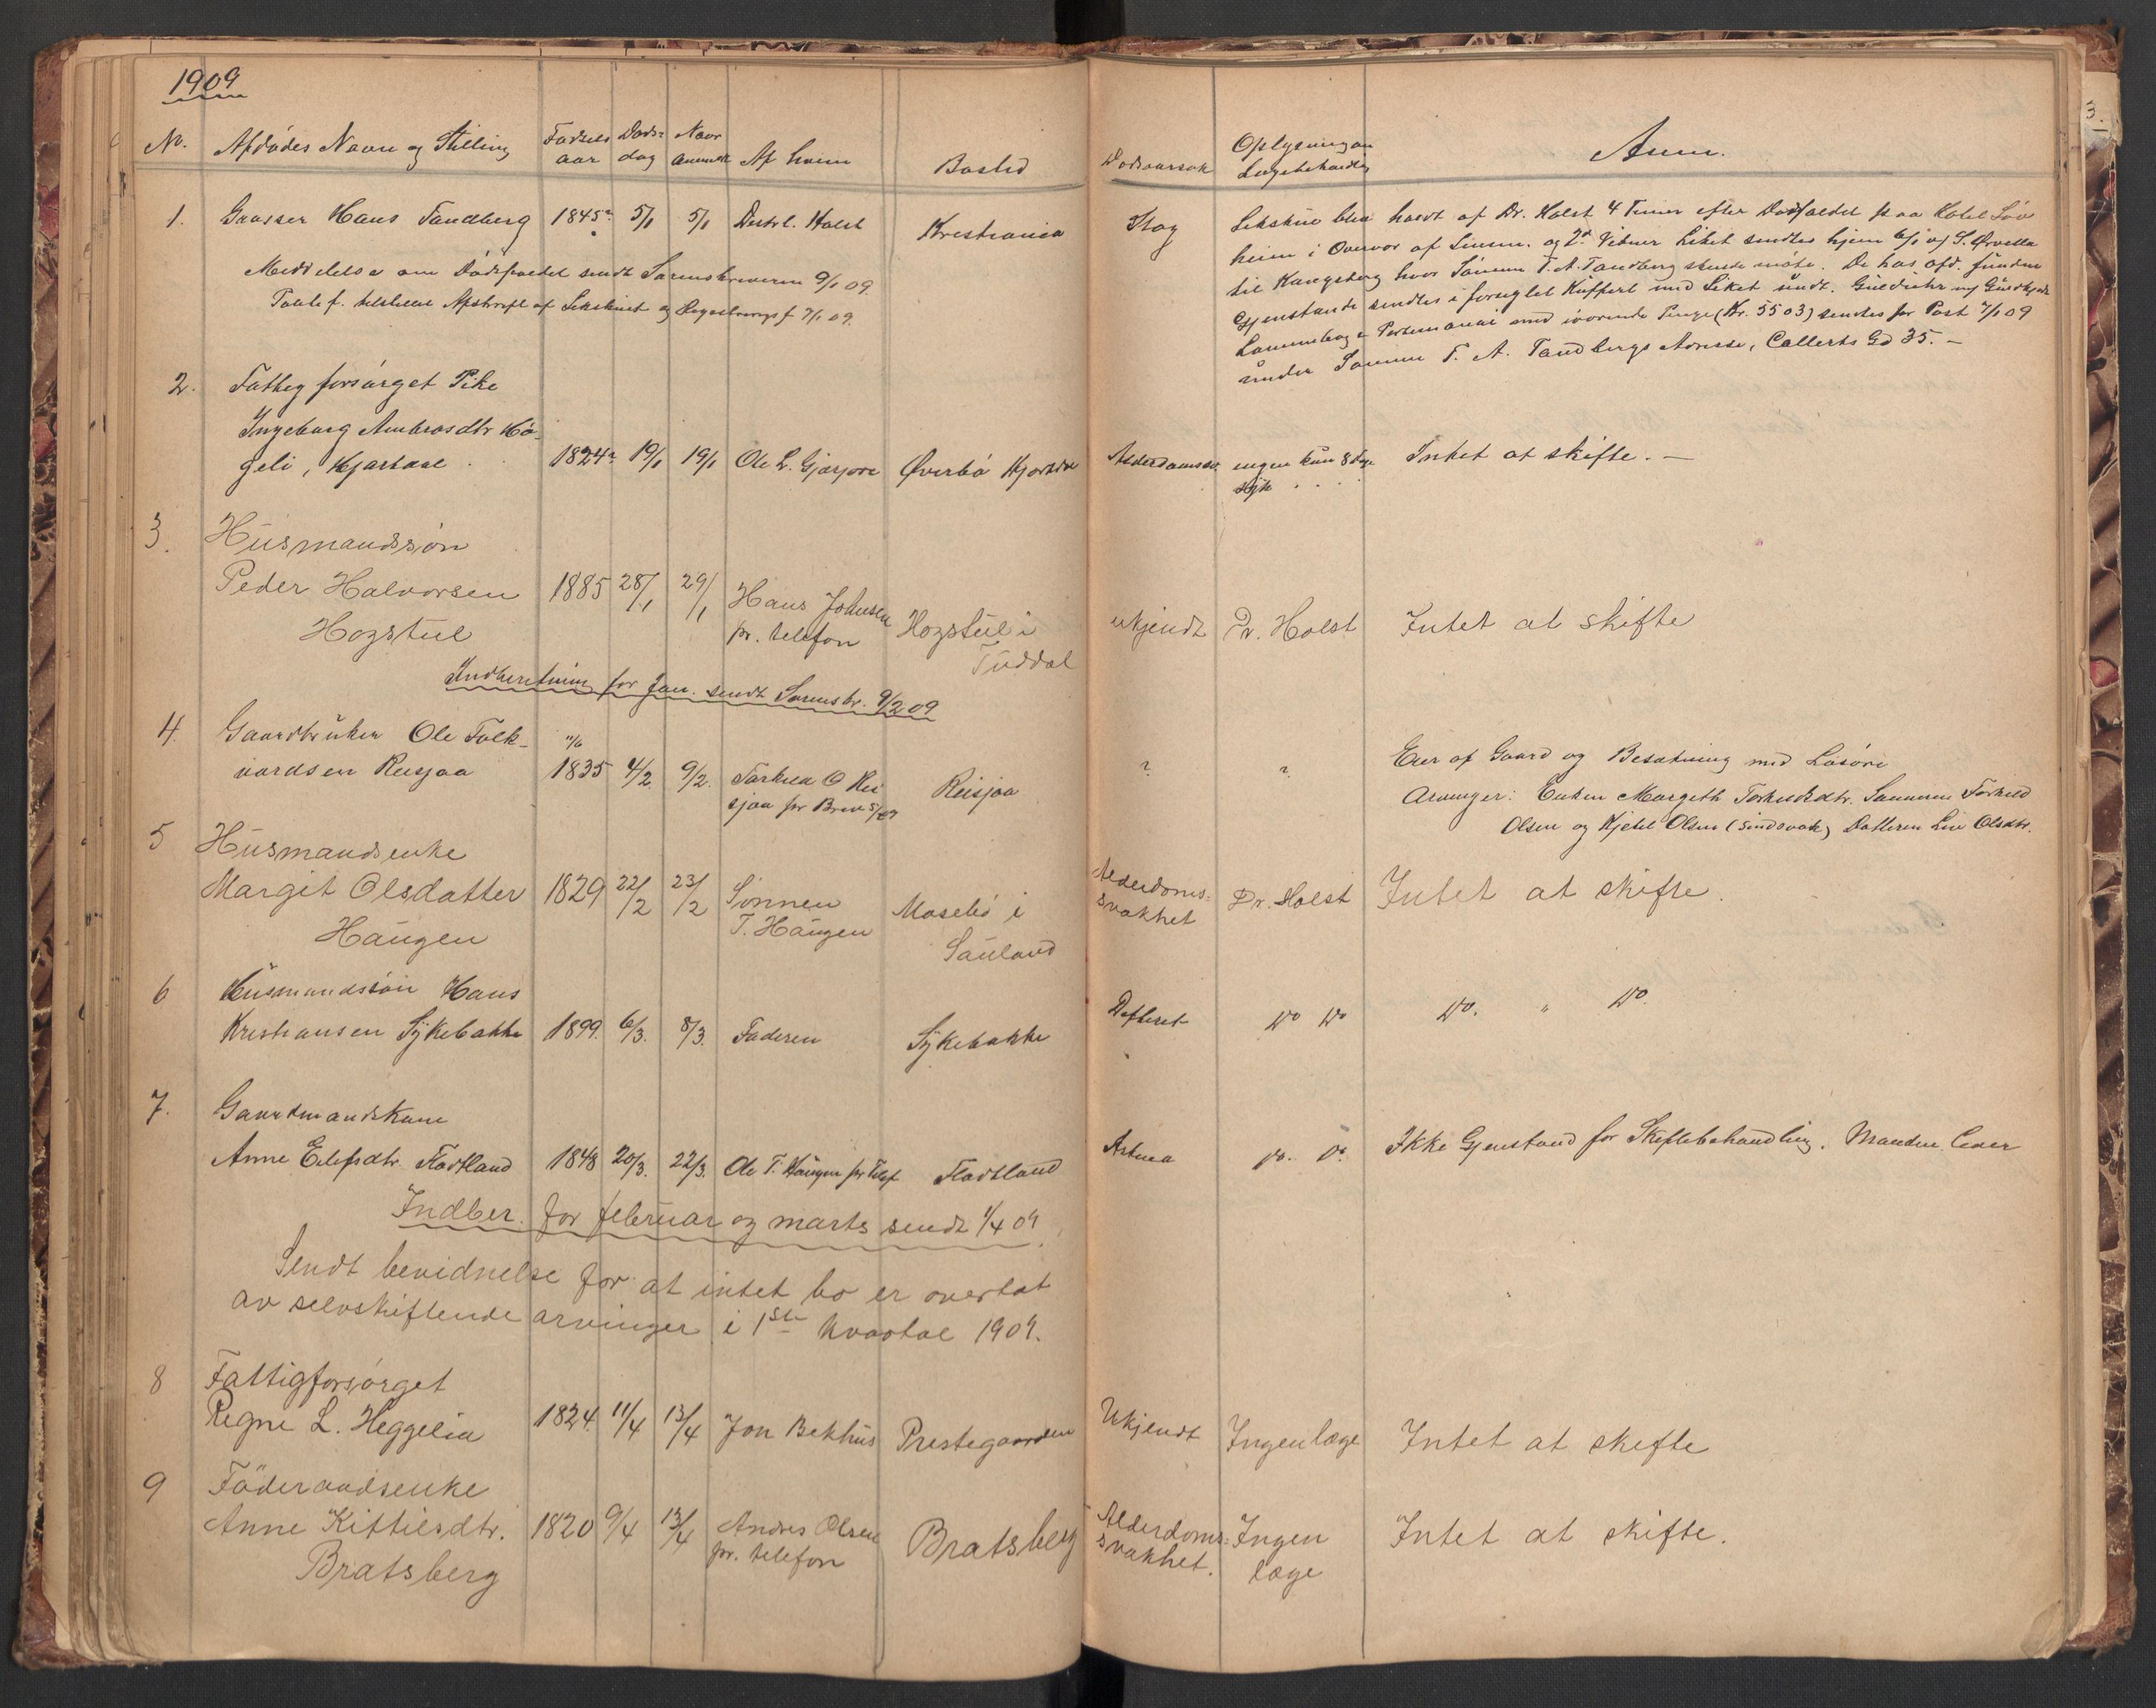 1909
No. Afdødes Navn og Stilling Fødsels aar Døds- dag Naar anmeldt Af hvem Bosted Dødsaarsak Oplysning om Lægebehandling Anm.
1. Grosser Hans Tandberg 1845? 5/1 5/1 Distrl. Holst Kristiania Slag
Meddelelse om Dødsfaldet sendt Sorenskriveren 9/1 09.
Likskue blev holdt af Dr. Holst 4 Timer efter Dødsfaldet paa Hotel Løv
heim i Overvær af Lensm. og 2de Vidner Liket sendtes hjem 6/1 S. Ørvella
til Kongsberg hvor Sønnen T. A. Tandberg skulde møte. De hos afd. fundne
Gjenstande sendtes i forseglet Kuffert med Liket undt. Guldur
Lommebog & Portemonnai med iværende Penge (Kr. 55 03) sendtes pr Post 7/1 09
under Sønnen T. A. Tandbergs Adresse, Colletts Gd 35. -
2. Fattigforsørget Pike
Ingeborg Ambrosdtr Hø-
geli, Hjartdal 1824? 19/1 19/1 Ole L. Øverbø Hjartdal Alderdomssv. ingen kun 8 Dage syk Intet at skifte. -
3. Husmandssøn
Peder Halvorsen 1885 28/1 29/1 Hans Johnsen pr. telefon Hogstul i Tuddal ukjendt Dr. Holst Intet at skifte
Hogstul
Indberetning for Jan. sendt Sorenskr. 9/2 09
4. Gaardbruker Ole Folk- 11/6
vardsen Reisjaa 1835 4/2 9/2. Torkild O Rei sjaa pr Brev 5/2 09 Reisjaa ? ?
Eier af Gaard og Besætning med Løsøre
Arvinger: Enken Margeth Torkildsdtr. Sønnerne Torkild
Olsen og Kjetil Olsen (sindsvak) Datteren Liv Olsdtr.
5 Husmandsenke
Margit Olsdatter 1829 22/2 23/2 Sønnen T. Haugen Mosebø i Sauland Alderdoms- svakhet Dr. Holst Intet at skifte.
Haugen
6 Husmandssøn Hans
Kristiansen Sykebakke 1899. 6/3. 8/3. Faderen Sykebakke Difterit Do Do Do. " Do.
7. Gaardmandskone
Anne Eilefsdtr. Flatland 1848 20/3. 22/3. Ole T. Haugen pr Telef Flatland Astma Do. Do. Ikke Gjenstand for Skiftebehandling. Manden lever
Indber. for februar og marts sendt 1/4 09.
Sendt bevidnelse for at intet bo er overtat
av selvskiftende arvinger i 1ste kvartal 1909.
8 Fattigforsørget
Regne L. Heggelia 1824. 11/4 13/4 Jon Bekhus Prestegaarden Ukjendt Ingen læge Intet at skifte
9 Føderaadsenke
Anne Kittilsdtr. 1820 9/4 13/4 Andres Olsen pr. telefon Bratsberg Alderdoms- svakhet. Ingen læge Intet at skifte.
Bratsberg
3.